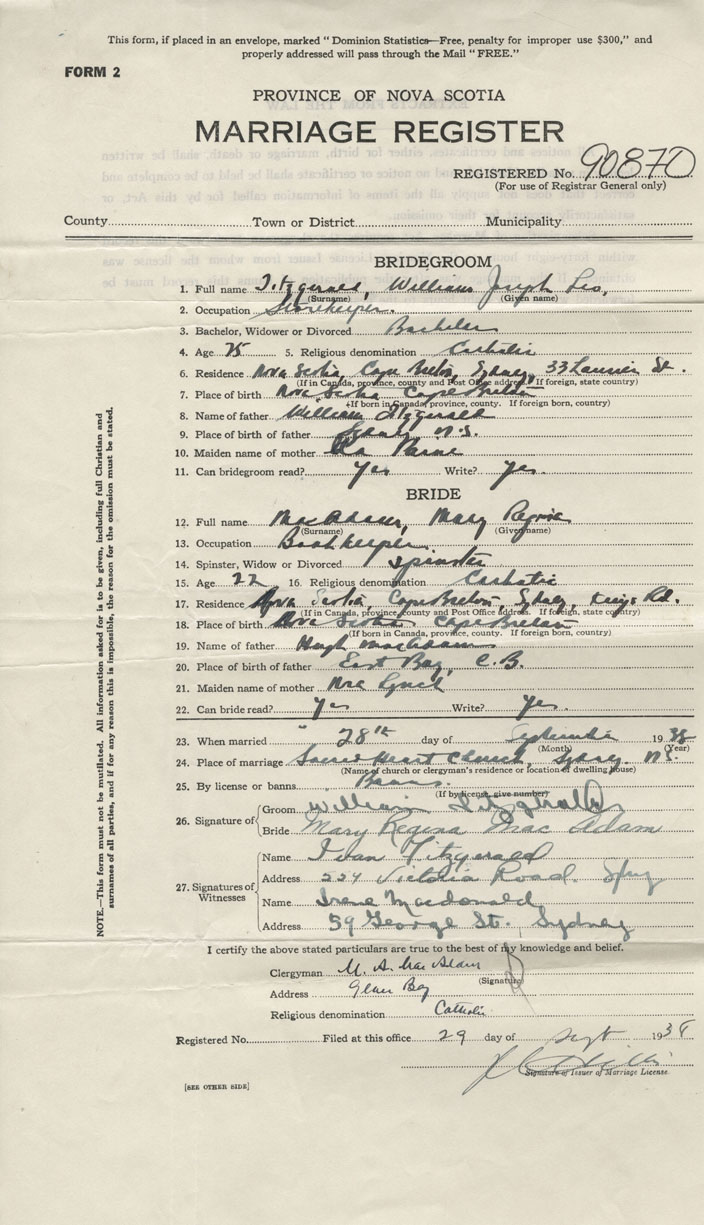 This form, if placed in an envelope, marked "Dominion Statistics—Free, penalty for improper use $300," and
properly addressed will pass through the Mail "FREE."
FORM 2
PROVINCE OF NOVA SCOTIA
MARRIAGE REGISTER
REGISTERED No. 90870
(For use of Registrar General only)
County Town or District Municipality
BRIDEGROOM
1. Full name Fitzgerald, William Joseph Leo,
(Surname) (Given name)
2. Occupation Storekeeper.
3. Bachelor, Widower or Divorced Bachelor
4. Age 25 5. Religious denomination Catholic
6. Residence Nova Scotia, Cape Breton, Sydney, 33 Laurier St.
(If in Canada, province, county and Post Office address. If foreign, state country)
7. Place of birth Nova Scotia Cape Breton
(If born in Canada, province, county. If foreign born, country)
8. Name of father William Fitzgerald
9. Place of father Sydney N.S.
10. Maiden name of mother
11. Can bridegroom read? Yes Write? Yes.
BRIDE
12. Full name MacAdam, Mary Regina
(Surname) (Given name)
13. Occupation Bookkeeper.
14. Spinster, Widow or Divorced Spinster
15. Age 22 16. Religious denomination Catholic
17. Residence Nova Scotia, Cape Breton, Sydney, Kings Rd.
(If in Canada, province, county and Post Office address. If foreign, state country)
18. Place of birth Nova Scotia Cape Breton
(If born in Canada, province, county. If foreign born, country)
19. Name of father Hugh MacAdam
20. Place of birth of father East Bay, C.B.
21. Maiden name of mother Lynch
22. Can bride read? Yes Write? Yes.
23. When married 28th day of September 1938
(Month) (Year)
24. Place of marriage Sacred Heart Church, Sydney N.S.
(Name of church or clergyman's residence or location of dwelling house)
25. By license or banns Banns.
(If by license, give number)
26. Signature of Groom William Fitzgerald
Bride Mary Regina Mac Adam
27. Signatures of Witnesses
Name Ivan Fitzgerald
Address 224 Victoria Road. Syd
Name Irene Macdonald
Address 59 George St., Sydney
I certify the above stated particulars are true to the best of my knowledge and belief.
Clergyman M. A. MacAdam
(Signature)
Address Glace Bay
Religious denomination Catholic
Registered No. Filed at this office 29 day of Sept 1938
Signature of Issuer of Marriage License.
[SEE OTHER SIDE]
NOTE.—This form must not be mutilated. All information asked for is to be given, including full Christian and
surnames of all parties, and if for any reason this is impossible, the reason for the omission must be stated.